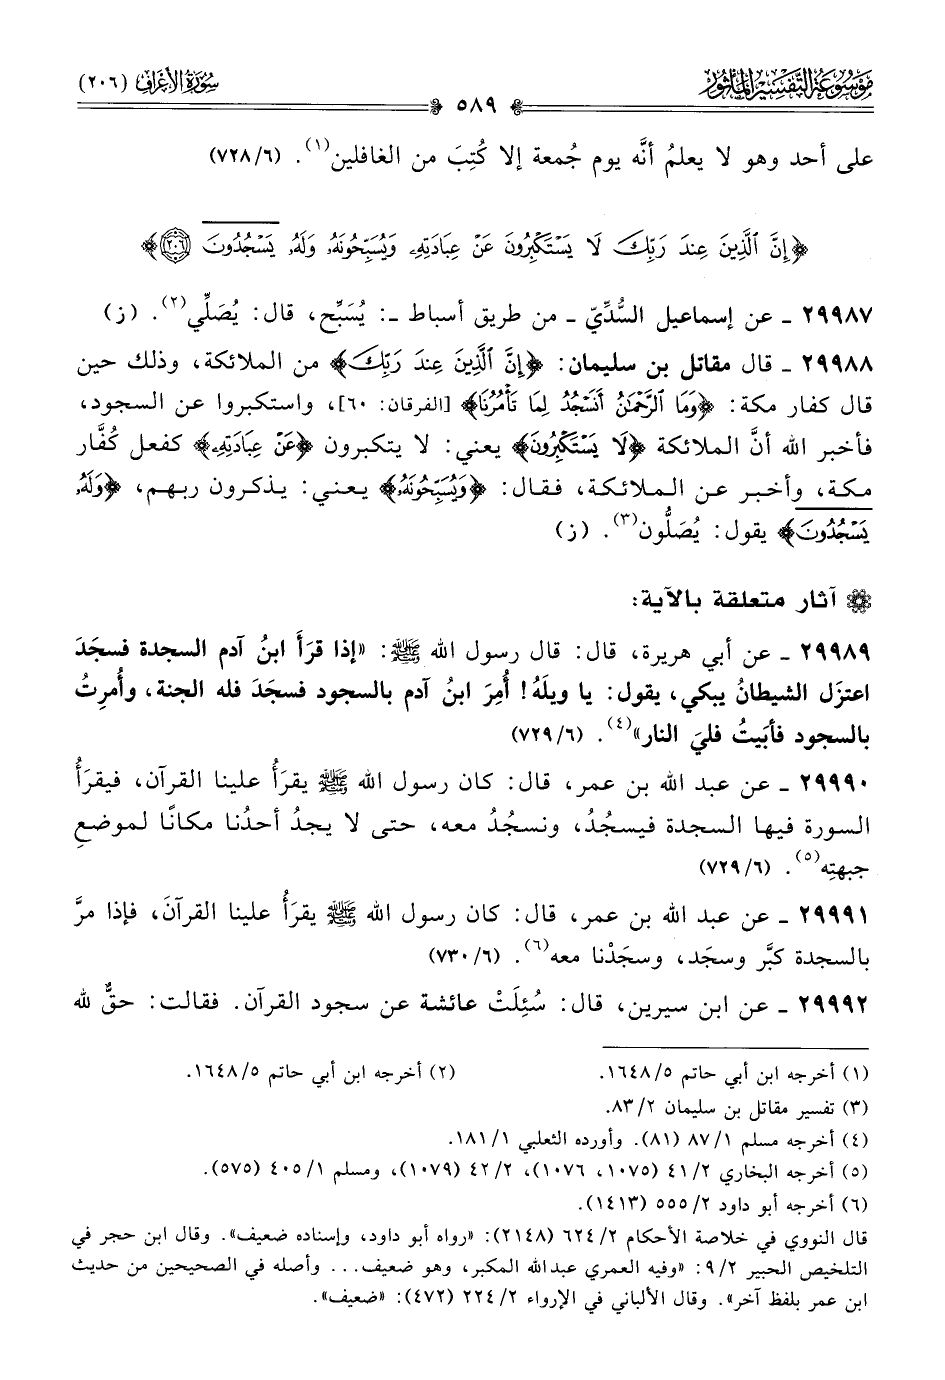 موسوعة التفسير المأثور
سورة الأعراف (٢٠٦)
٥٨٩
على أحد وهو لا يعلمُ أنَّه يوم جُمعة إلا كُتِبَ من الغافلين(١). (٧٢٨/٦)
﴿إِنَّ ٱلَّذِينَ عِندَ رَبِّكَ لَا يَسْتَكْبِرُونَ عَنْ عِبَادَتِهِۦ وَيُسَبِّحُونَهُۥ وَلَهُۥ يَسْجُدُونَ ۩ ٢٠٦﴾
٢٩٩٨٧ ـ عن إسماعيل السُّدِّيّ ـ من طريق أسباط ـ: يُسَبِّح، قال: يُصَلِّي(٢). (ز)
٢٩٩٨٨ ـ قال مقاتل بن سليمان: ﴿إِنَّ ٱلَّذِينَ عِندَ رَبِّكَ﴾ من الملائكة، وذلك حين
قال كفار مكة: ﴿وَمَا ٱلرَّحْمَٰنُ أَنَسْجُدُ لِمَا تَأْمُرُنَا﴾ [الفرقان: ٦٠]، واستكبروا عن السجود،
فأخبر الله أنَّ الملائكة ﴿لَا يَسْتَكْبِرُونَ﴾ يعني: لا يتكبرون ﴿عَنْ عِبَادَتِهِۦ﴾ كفعل كُفَّار
مكة، وأخبر عن الملائكة، فقال: ﴿وَيُسَبِّحُونَهُۥ﴾ يعني: يذكرون ربهم، ﴿وَلَهُۥ
يَسْجُدُونَ﴾ يقول: يُصَلُّون(٣). (ز)
آثار متعلقة بالآية:
٢٩٩٨٩ ـ عن أبي هريرة، قال: قال رسول الله ﷺ: «إذا قرَأَ ابنُ آدم السجدة فسجَدَ
اعتزَل الشيطانُ يبكي، يقول: يا ويلَهُ! أُمِرَ ابنُ آدم بالسجود فسجَدَ فله الجنة، وأُمرِتُ
بالسجود فأبَيتُ فليَ النار»(٤). (٧٢٩/٦)
٢٩٩٩٠ ـ عن عبد الله بن عمر، قال: كان رسول الله ﷺ يقرَأُ علينا القرآن، فيقرَأُ
السورة فيها السجدة فيسجُدُ، ونسجُدُ معه، حتى لا يجدُ أحدُنا مكانًا لموضعِ
جبهتِه(٥). (٧٢٩/٦)
٢٩٩٩١ ـ عن عبد الله بن عمر، قال: كان رسول الله ﷺ يقرَأُ علينا القرآنَ، فإذا مرَّ
بالسجدة كبَّر وسجَد، وسجَدْنا معه(٦). (٧٣٠/٦)
٢٩٩٩٢ ـ عن ابن سيرين، قال: سُئِلَتْ عائشة عن سجود القرآن. فقالت: حقٌّ لله
(١) أخرجه ابن أبي حاتم ١٦٤٨/٥.
(٢) أخرجه ابن أبي حاتم ١٦٤٨/٥.
(٣) تفسير مقاتل بن سليمان ٨٣/٢.
(٤) أخرجه مسلم ٨٧/١ (٨١). وأورده الثعلبي ١٨١/١.
(٥) أخرجه البخاري ٤١/٢ (١٠٧٥، ١٠٧٦)، ٤٢/٢ (١٠٧٩)، ومسلم ٤٠٥/١ (٥٧٥).
(٦) أخرجه أبو داود ٥٥٥/٢ (١٤١٣).
قال النووي في خلاصة الأحكام ٦٢٤/٢ (٢١٤٨): «رواه أبو داود، وإسناده ضعيف». وقال ابن حجر في
التلخيص الحبير ٩/٢: «وفيه العمري عبدالله المكبر، وهو ضعيف... وأصله في الصحيحين من حديث
ابن عمر بلفظ آخر». وقال الألباني في الإرواء ٢٢٤/٢ (٤٧٢): «ضعيف».